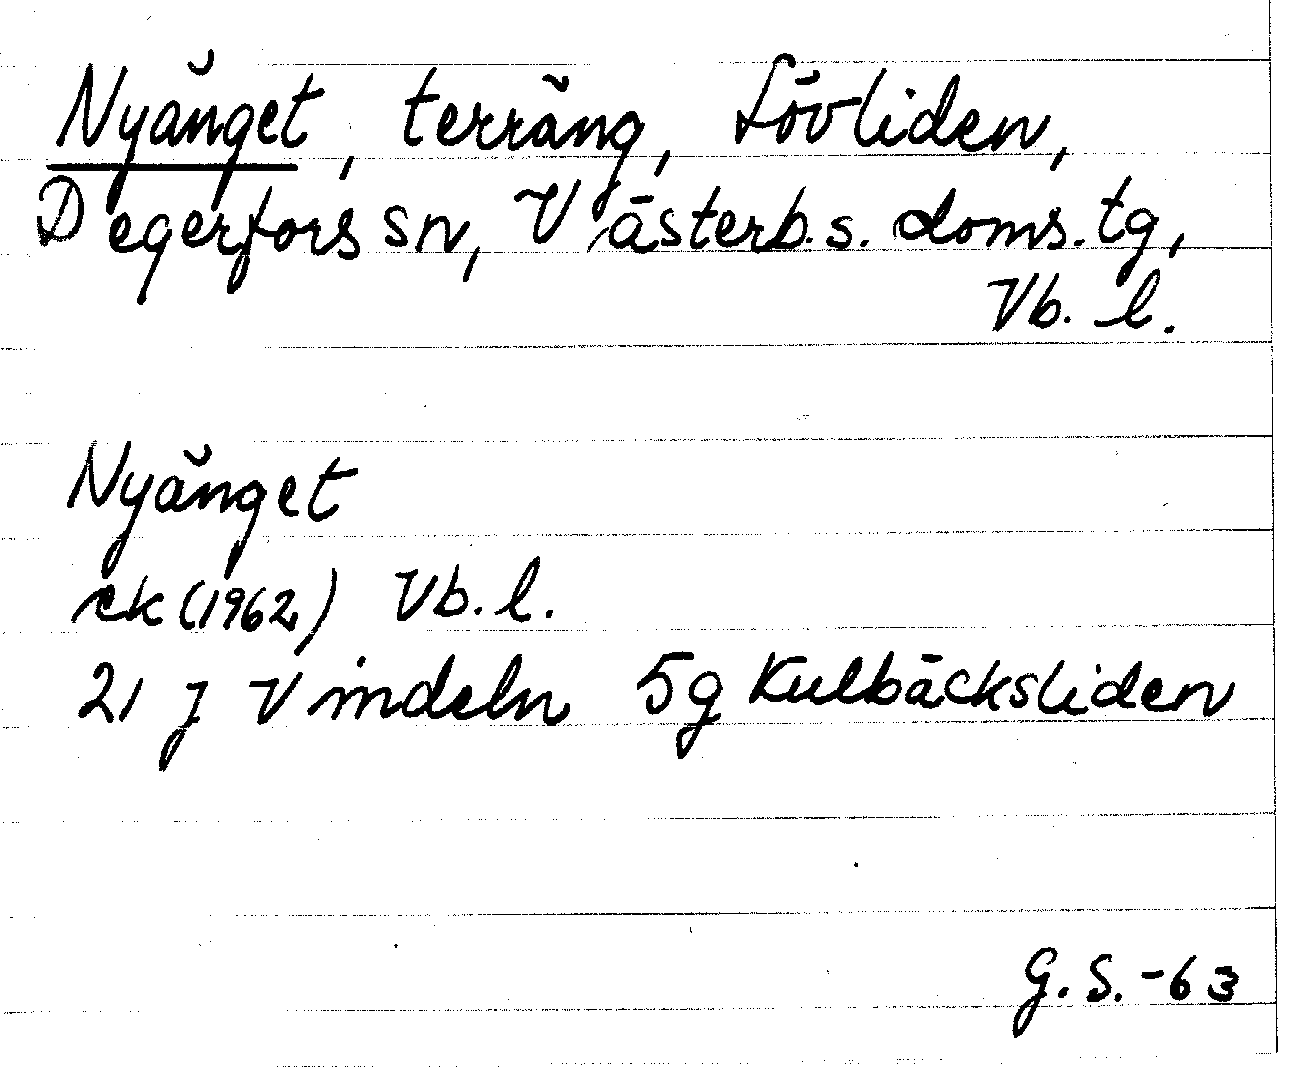 Nyänget, terräng, Lövliden,
Degerfors sn, Västerb. s. doms. tg,
Vb. l.
Nyänget
ek (1962) Vb. l.
21 J Vindeln 5g Kulbäcksliden
G. S. -63